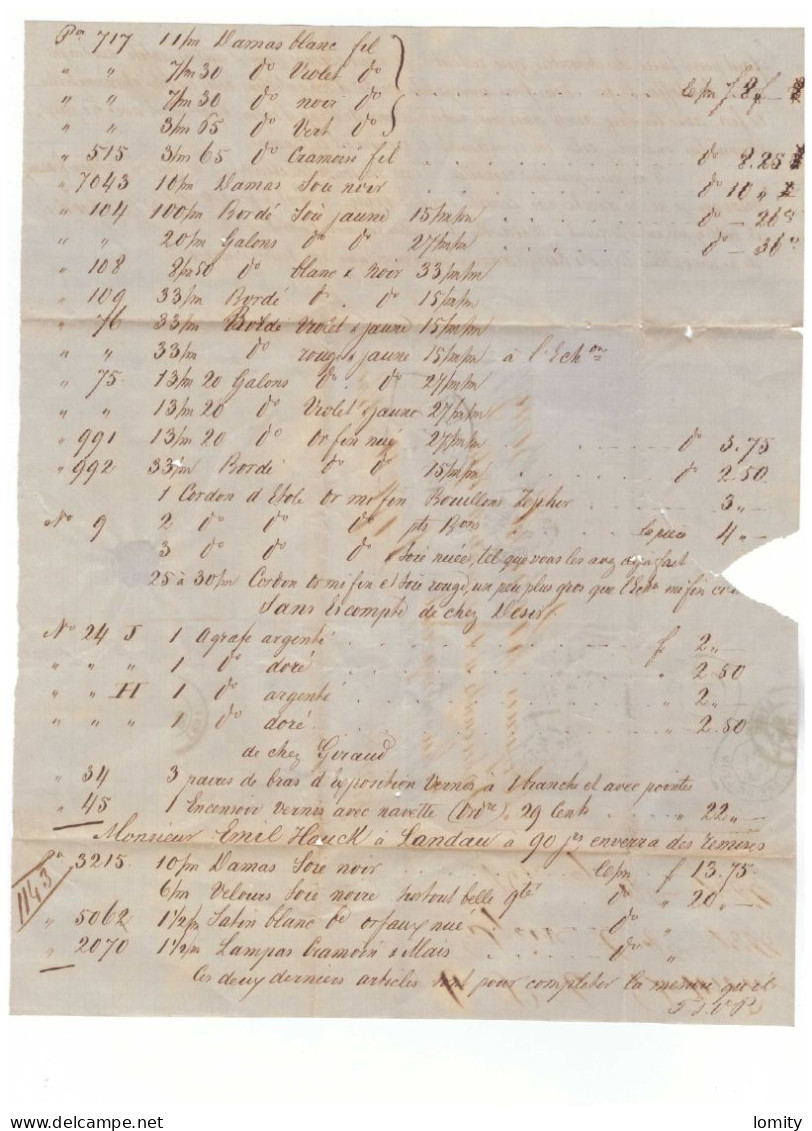 Pon 717 11/m Damas blanc fil
" " 7/m30 do Violet do
" " 7/m30 do noir do le/m f. 8
" " 3/m 65 do Vert do
" 515 3/m 65 do Cramoisi fil do 8.25
" 7043 10/m Damas Soie noir do 10 "
" 104 100/m Bordé Soie jaune 15/m/m do — 26
" " 20/m Galons do do 27/m/m do — 36
" 108 8/m50 do blanc & noir 33/m/m
" 109 33/m Bordé do do 15/m/m
" 76 33/m Bordé Violet & jaune 15/m/m
" " 33/m do rouge & jaune 15/m/m à l'Echon
" 75 13/m 20 Galons do do 27/m/m
" " 13/m20 do Violet & jaune 27/m/m
" 991 13/m 20 do or fin nué 27/m/m do 3.75
" 992 33/m Bordé do do 15/m/m do 2.50
1 Cordon d'Etole or mi fin Bouillons Zepher 3 "
No 9 2 do do do pts Bons la pièce 4 "
3 do do do Soie nuée, tel que vous les avez déjà fait
25 à 30/m Cordon or mi fin et Soie rouge, un peu plus gros que l'Echon mi fin
Sans Escompte de chez
No 24 J 1 Agrafe argenté f 2 "
" " " 1 do doré " 2.50
" " H 1 do argenté " 2 "
" " " 1 do doré " 2.50
de chez Giraud
" 34 3 paires de bras d'exposition Vernis à 1 branche et avec pointes
" 45 1 Encensoir vernis avec navette (Ordre) 29 Cent " 22 "
Monsieur Emil Hauck à Landau à 90 jrs enverra des remises
Pon 3215 10/m Damas Soie noir le/m f 13.75
1143
6/m Velours Soie noire surtout belle qté do " 20 "
" 5062 1 1/2/m Satin blanc or faux nué do "
" 2070 1 1/2/m Lampas Cramoisi & Maïs do "
Ces deux derniers articles sont pour completer la mesure qu'il
T.S.V.P.
lomity